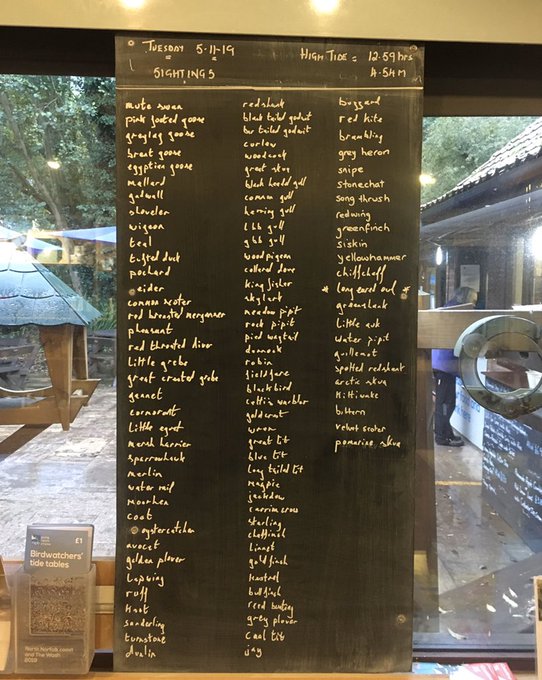 TUESDAY 5-11-19
SIGHTINGS
HIGH TIDE = 12.59 hrs
4.54M
mute swan
pink footed goose
greylag goose
brent goose
egyptian goose
mallard
gadwall
shoveler
wigeon
teal
tufted duck
pochard
eider
common scoter
red breasted merganser
pheasant
red throated diver
little grebe
great crested grebe
gannet
cormorant
little egret
marsh harrier
sparrowhawk
merlin
water rail
moorhen
coot
oystercatcher
avocet
golden plover
lapwing
ruff
knot
sanderling
turnstone
dunlin
redshank
black tailed godwit
bar tailed godwit
curlew
woodcock
great skua
black headed gull
common gull
herring gull
lbb gull
gbb gull
woodpigeon
collared dove
kingfisher
skylark
meadow pipit
rock pipit
pied wagtail
dunnock
robin
fieldfare
blackbird
cettis warbler
goldcrest
wren
great tit
blue tit
long tailed tit
magpie
jackdaw
carrion crow
starling
chaffinch
linnet
goldfinch
kestrel
bullfinch
reed bunting
grey plover
coal tit
jay
buzzard
red kite
brambling
grey heron
snipe
stonechat
song thrush
redwing
greenfinch
siskin
yellowhammer
chiffchaff
* long eared owl *
greenshank
little auk
water pipit
guillemot
spotted redshank
arctic skua
kittiwake
bittern
velvet scoter
pomarine skua
£1
Birdwatchers'
tide tables
North Norfolk coast
and The Wash
2019